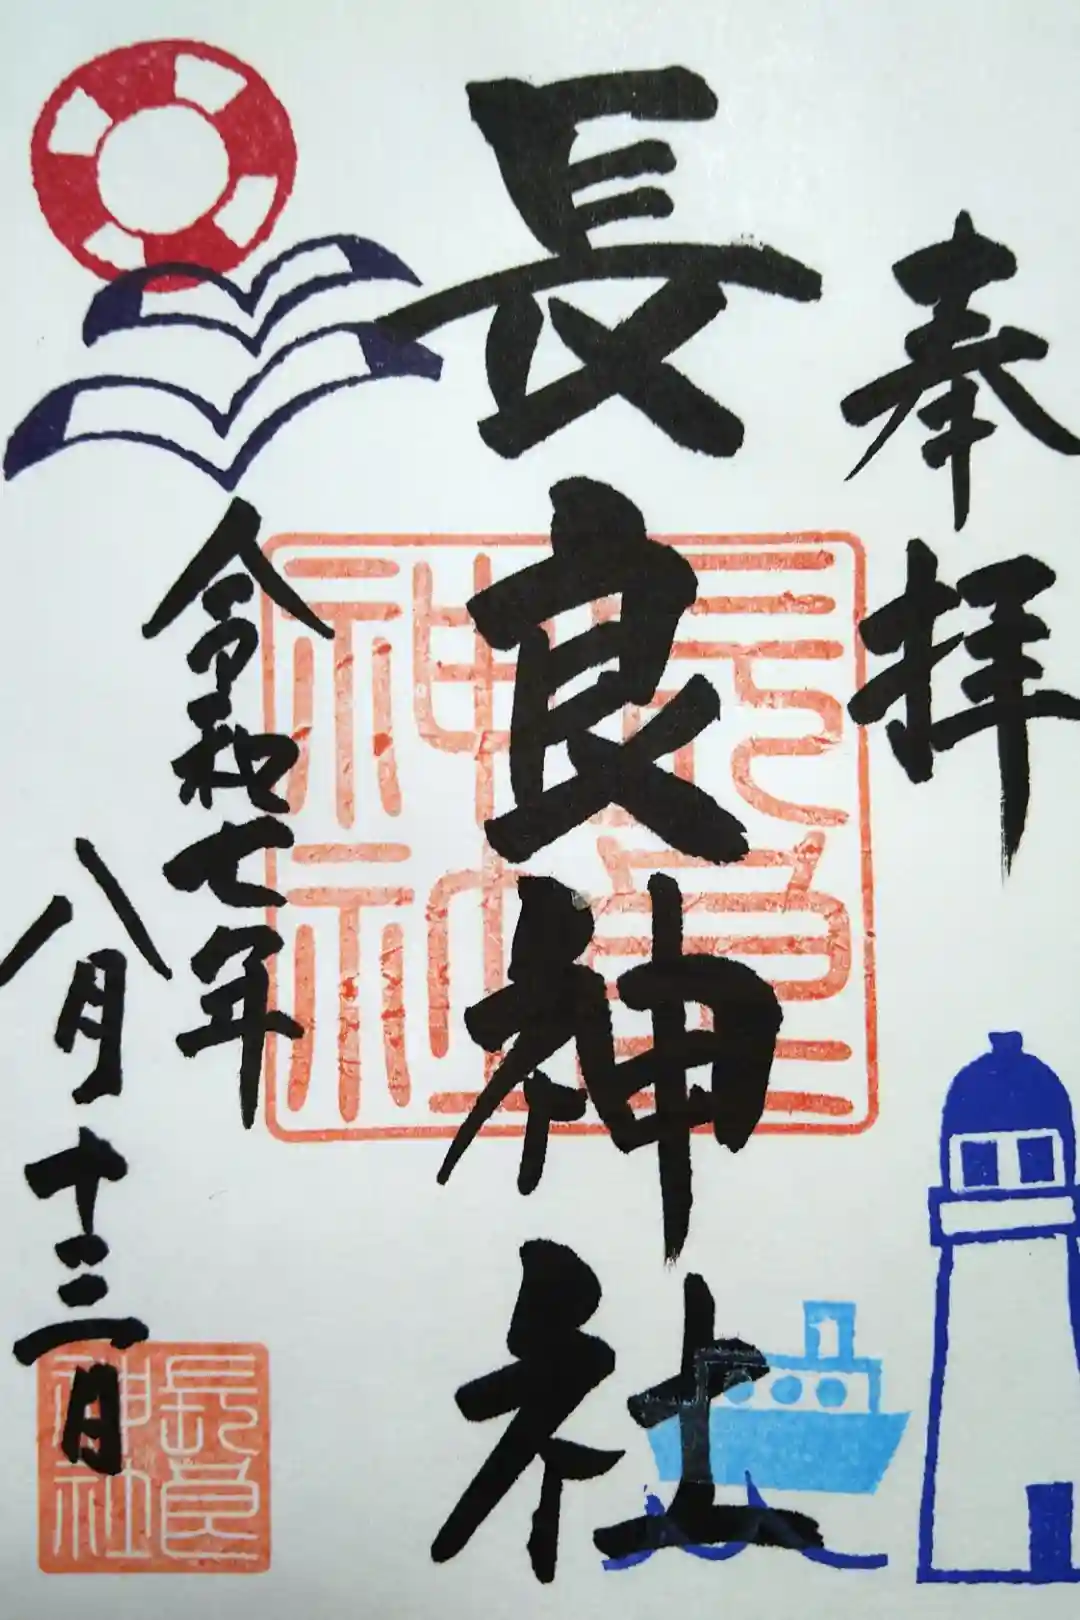 奉拝
長良神社
長良
神社
令和七年
八月十三日
長良
神社